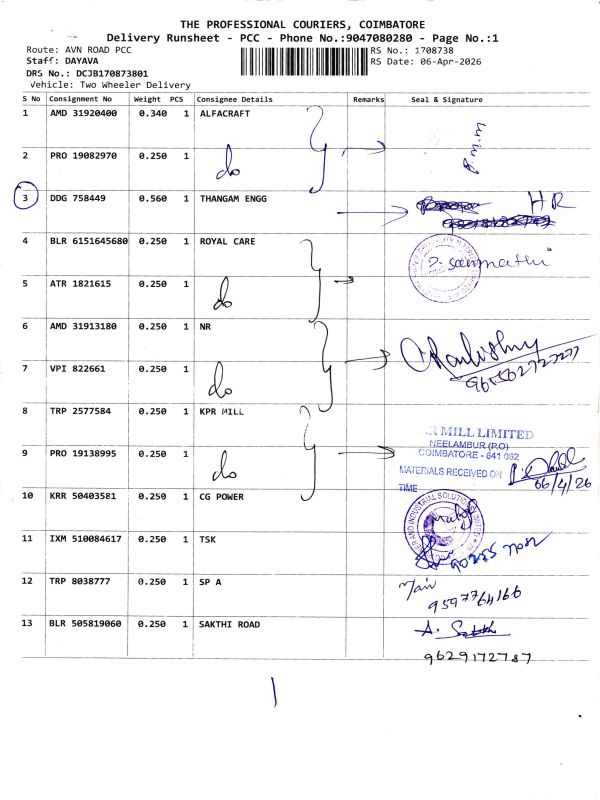 THE PROFESSIONAL COURIERS, COIMBATORE
Delivery Runsheet - PCC - Phone No.:9047080280 - Page No.:1
Route: AVN ROAD PCC
RS No.: 1708738
Staff: DAYAVA
RS Date: 06-Apr-2026
DRS No.: DCJB170873801
Vehicle: Two Wheeler Delivery
S No Consignment No Weight PCS Consignee Details Remarks Seal & Signature
1 AMD 31920400 0.340 1 ALFACRAFT
2 PRO 19082970 0.250 1 do
3 DDG 758449 0.560 1 THANGAM ENGG HR
4 BLR 6151645680 0.250 1 ROYAL CARE
5 ATR 1821615 0.250 1 do
6 AMD 31913180 0.250 1 NR
7 VPI 822661 0.250 1 do
8 TRP 2577584 0.250 1 KPR MILL
MILL LIMITED
NEELAMBUR (P.O)
9 PRO 19138995 0.250 1 do COIMBATORE - 641 062
MATERIALS RECEIVED ON 06/4/26
TIME
10 KRR 50403581 0.250 1 CG POWER
11 IXM 510084617 0.250 1 TSK
12 TRP 8038777 0.250 1 SP A
13 BLR 505819060 0.250 1 SAKTHI ROAD A. Sakthi
9629172787